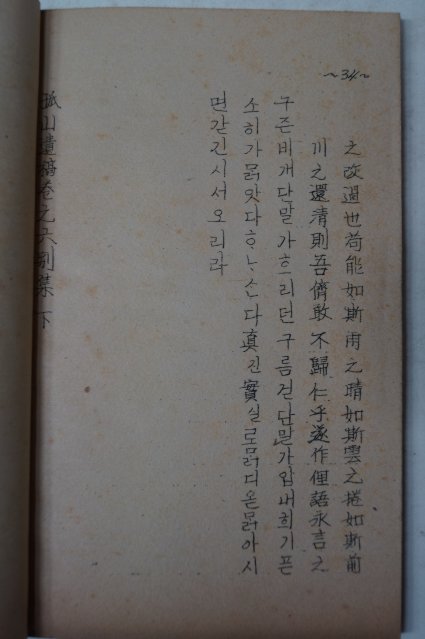 ~34~
之改過也苟能如斯雨之晴如斯雲之捲如斯前
川之還清則吾儕敢不歸仁乎遂作俚語永言之
구즌비개단말가흐리던구름걷단말가압내희기픈
소히가묽앗다ᄒᆞᄂᆞ손다眞진實실로묽디옫묽아시
면갇긴시서오리라
孤山遺稿卷之六別集 下